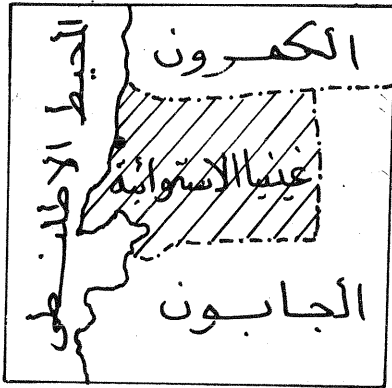 الكمرون
المحيط الاطلنطى
غينيا الاستوائية
الجابون